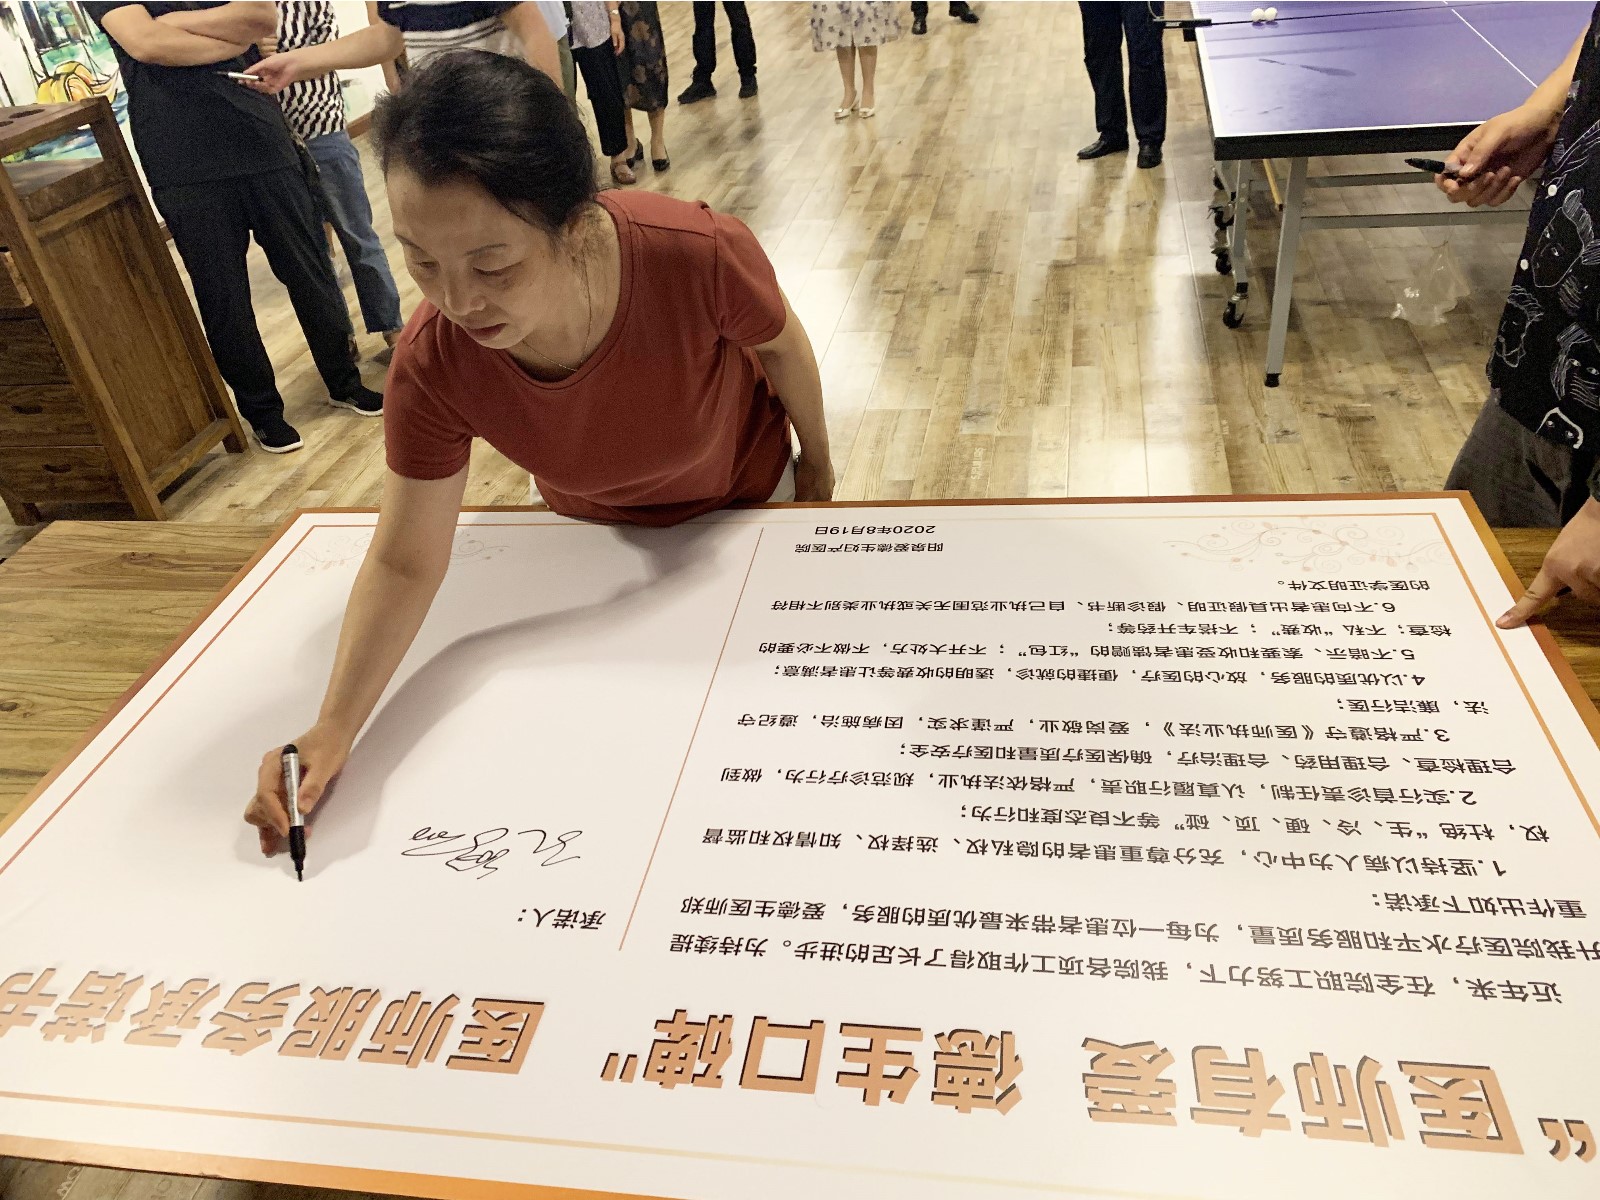 “医师有爱 德生口碑” 医师服务承诺书
近年来，在全院职工努力下，我院各项工作取得了长足的进步。为持续提
升我院医疗水平和服务质量，为每一位患者带来最优质的服务，爱德生医师郑
重作出如下承诺：
1.坚持以病人为中心，充分尊重患者的隐私权、选择权、知情权和监督
权，杜绝“生、冷、硬、顶、碰”等不良态度和行为；
2.实行首诊责任制，认真履行职责，严格依法执业，规范诊疗行为，做到
合理检查、合理用药、合理治疗，确保医疗质量和医疗安全；
3.严格遵守《医师执业法》，爱岗敬业，严谨求实，因病施治，遵纪守
法，廉洁行医；
4.以优质的服务，放心的医疗，便捷的就诊，透明的收费等让患者满意；
5.不暗示、索要和收受患者馈赠的“红包”；不开大处方，不做不必要的
检查；不私“收费”；不搭车开药等；
6.不向患者出具假证明、假诊断书、自己执业范围无关或执业类别不相符
的医学证明文件。
阳泉爱德生妇产医院
2020年8月19日
承诺人：